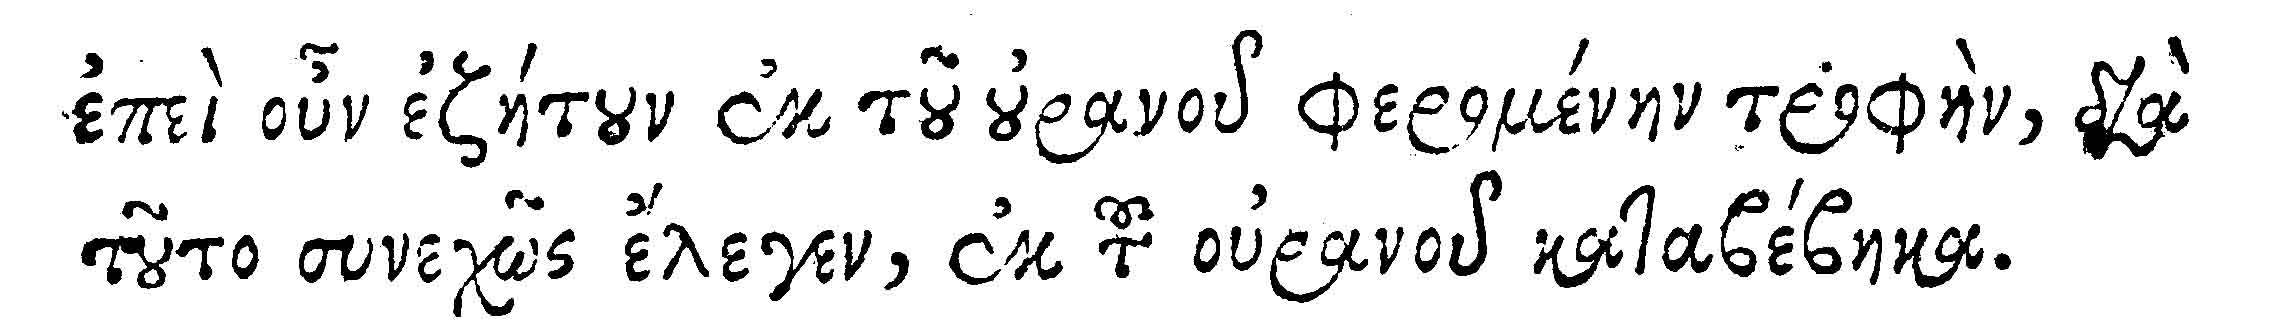 ἐπεὶ οὖν ἐζήτουν ἐκ τοῦ οὐρανοῦ φερομένην τροφὴν, διὰ
τοῦτο συνεχῶς ἔλεγεν, ἐκ τοῦ οὐρανοῦ καταβέβηκα.